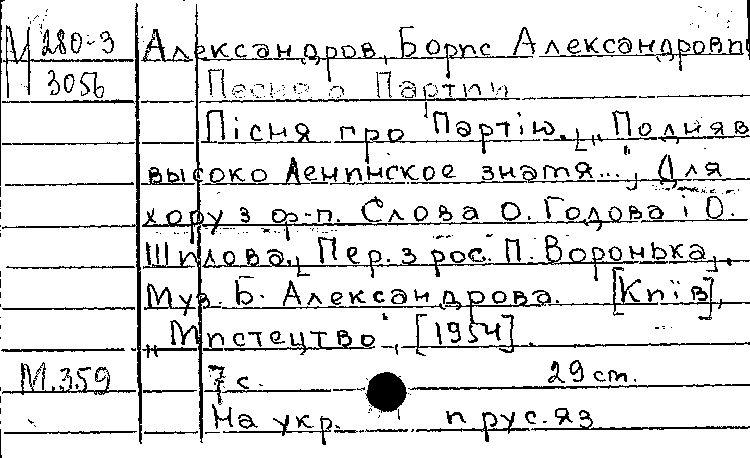 М 280-3 Александров, Борис Александрови
3056 Песня о Партии
Пісня про Партію. [„Подняв
высоко Ленинское знамя..."] Для
хору з ф-п. Слова О. Годова і О.
Шилова. [Пер. з рос. П. Воронька].
Муз. Б. Александрова. [Київ],
„Мистецтво", [1954].
М.359 7 с. 29 cm.
На укр. и рус. яз